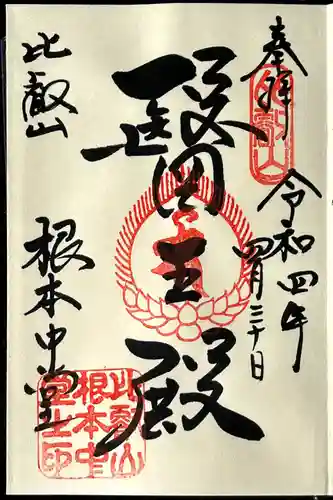 奉拝
令和四年
四月三十日
醫王殿
比叡山
根本中堂
比叡山
比叡山
根本中
堂之印